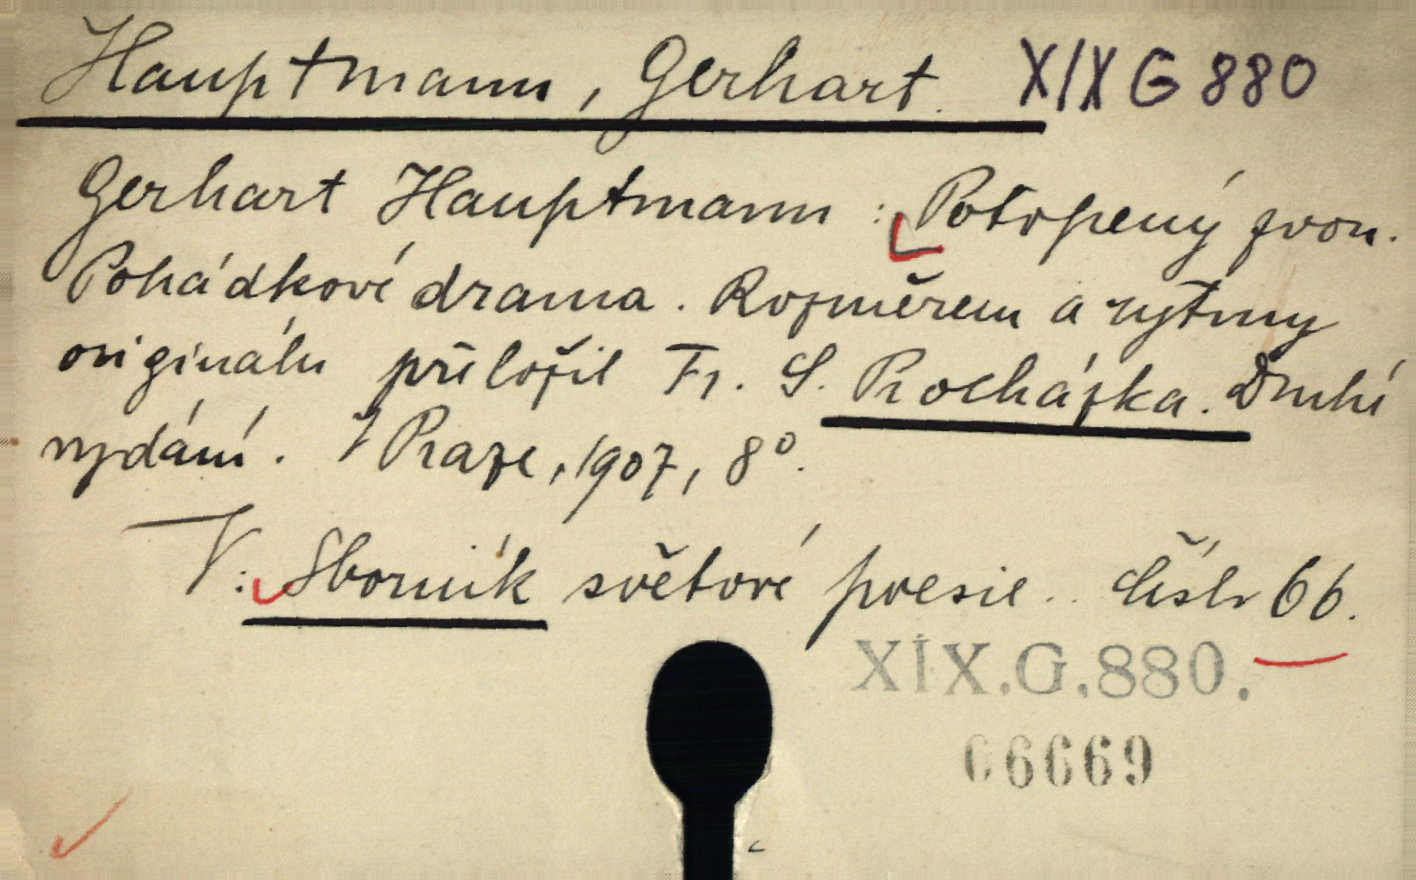 Hauptmann, Gerhart. XIX G 880
Gerhart Hauptmann: Potopený zvon.
Pohádkové drama. Rozměrem a rytmy
originálu přeložil Fr. S. Procházka. Druhé
vydání. V Praze, 1907, 8°.
V: Sborník světové poesie.. Číslo 66.
XIX.G.880.
66669